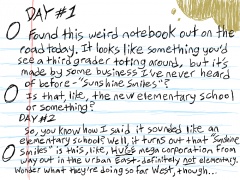 DAY #1
Found this weird notebook out on the
road today. It looks like something you'd
see a third grader toting around, but it's
made by some business I've never heard
of before - "Sunshine Smiles"?
Is that, like, the new elementary school
or something?
DAY #2
So, you know how I said it sounded like an
elementary school? Well, it turns out that "Sunshine
Smiles" is this, like, HUGE mega corporation from
way out in the urban East - definitely not elementary.
Wonder what they're doing so far West, though...